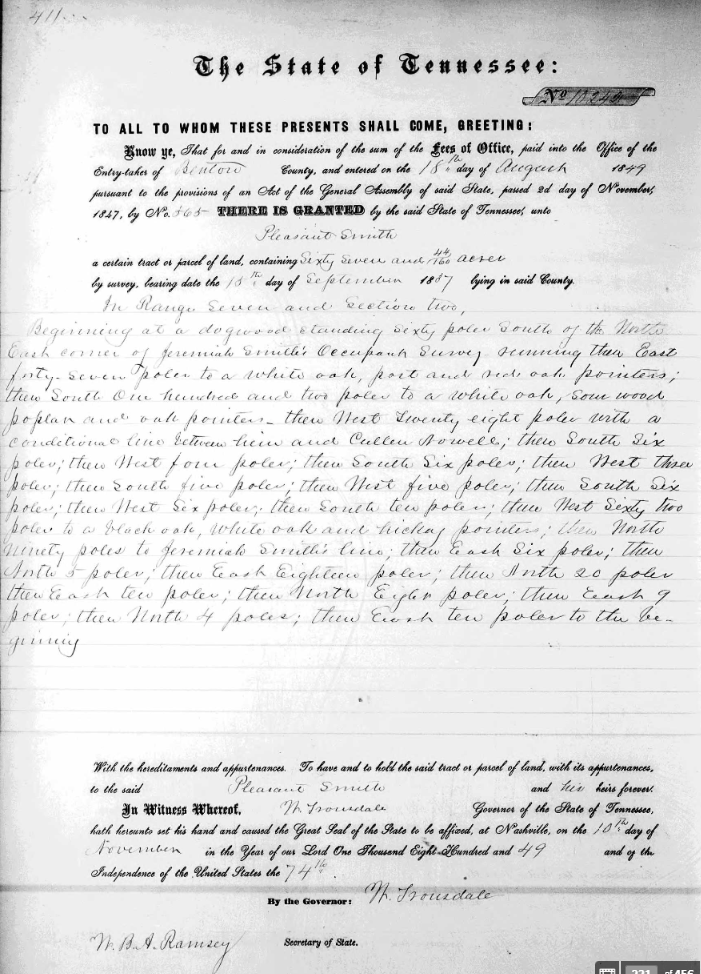 411
The State of Tennessee:
No
TO ALL TO WHOM THESE PRESENTS SHALL COME, GREETING:
Know ye, That for and in consideration of the sum of the Fees of Office, paid into the Office of the
Entry-taker of Benton County, and entered on the 18th day of August 1849
pursuant to the provisions of an Act of the General Assembly of said State, passed 2d day of November,
1847, by No. 565 THERE IS GRANTED by the said State of Tennessee, unto
Pleasant Smith
a certain tract or parcel of land, containing Sixty Seven and 44/160 acres
by survey, bearing date the 18th day of September 1837 lying in said County.
In Range Seven and Section two,
Beginning at a dogwood standing Sixty poles South of the North
East corner of Jeremiah Smith's Occupant Survey running then East
forty-Seven poles to a white oak, post and red oak pointers;
then South One hundred and two poles to a white oak, Sour wood
poplar and oak pointers - then West Twenty eight poles with a
conditional line between him and Cullen Nowell; then South Six
poles; then West four poles; then South Six poles; then West three
poles; then South five poles; then West five poles; then South Six
poles; then West Six poles; then South ten poles; then West Sixty two
poles to a black oak, white oak and hickory pointers; then North
Ninety poles to Jeremiah Smith's line; then East Six poles; then
North 5 poles; then East Eighteen poles; then North 20 poles
then East ten poles; then North Eight poles; then East 9
poles; then North 4 poles; then East ten poles to the be-
ginning
With the hereditaments and appurtenances. To have and to hold the said tract or parcel of land, with its appurtenances,
to the said Pleasant Smith and his heirs forever.
In Witness Whereof, W Trousdale Governor of the State of Tennessee,
hath hereunto set his hand and caused the Great Seal of the State to be affixed, at Nashville, on the 10th day of
November in the Year of our Lord One Thousand Eight-Hundred and 49 and of the
Independence of the United States the 74th
By the Governor: W Trousdale
W. B. A. Ramsey Secretary of State.
221 of 456